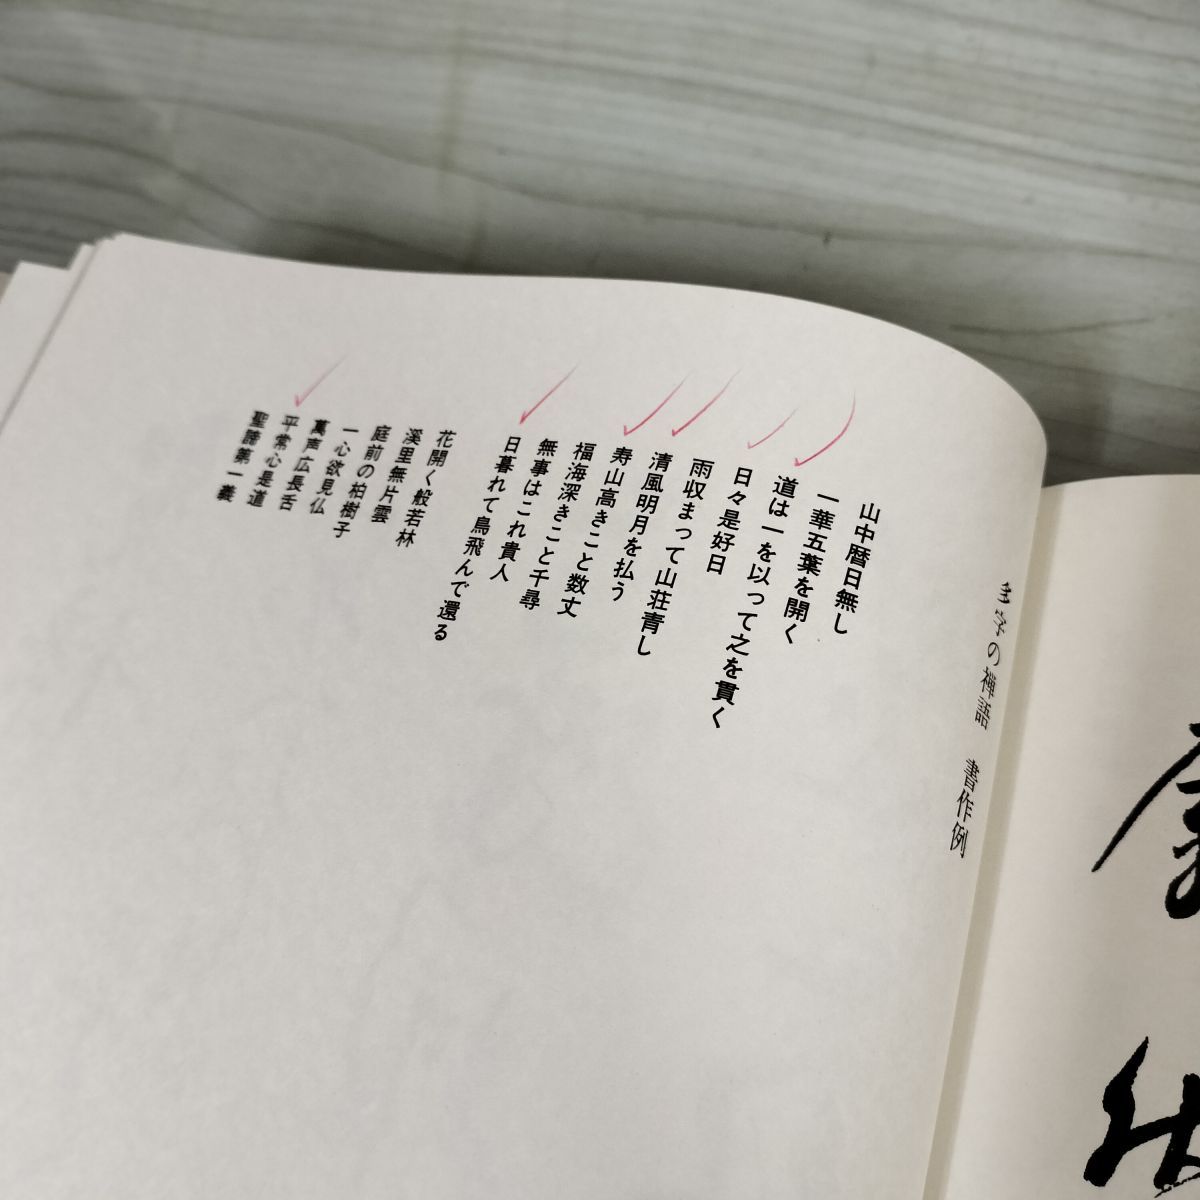 多字の禅語　書作例
山中暦日無し
一華五葉を開く
道は一を以って之を貫く
日々是好日
雨収まって山荘青し
清風明月を払う
寿山高きこと数丈
福海深きこと千尋
無事はこれ貴人
日暮れて鳥飛んで還る
花開く般若林
渓里無片雲
庭前の柏樹子
一心欲見仏
萬声広長舌
平常心是道
聖諦第一義